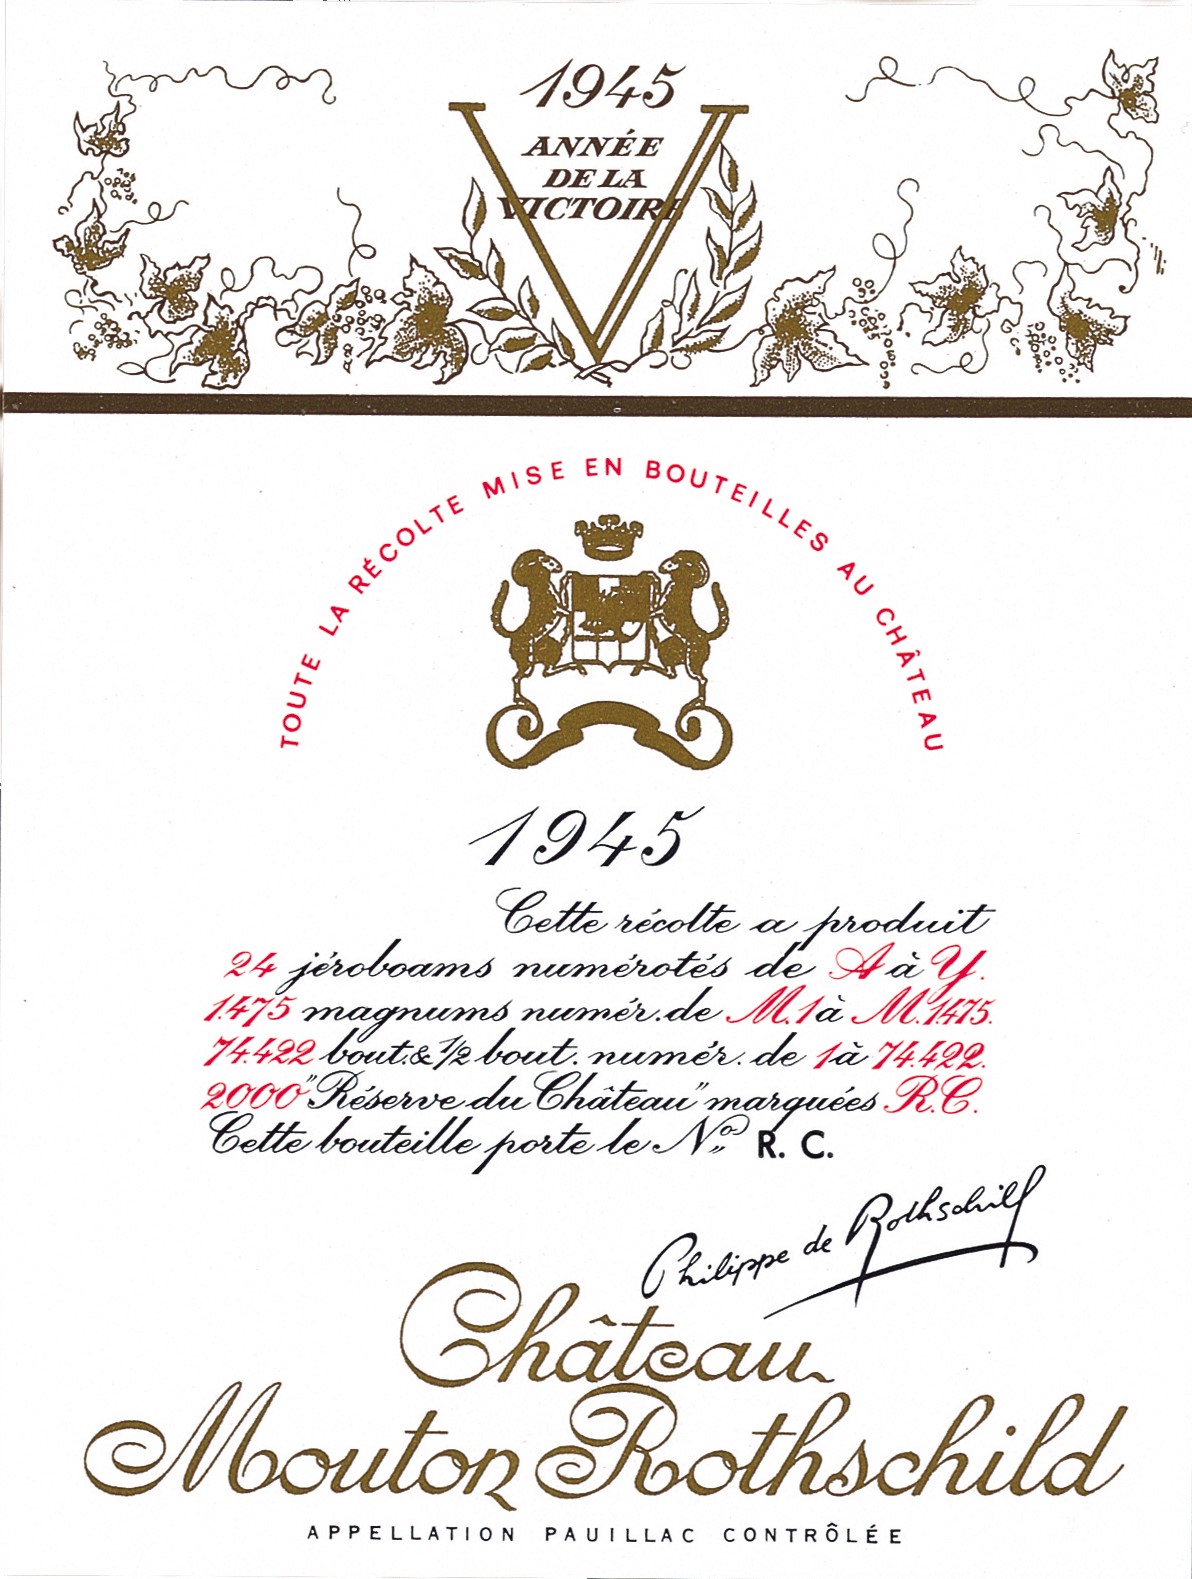 1945
ANNÉE
DE LA
VICTOIRE
TOUTE LA RÉCOLTE MISE EN BOUTEILLES AU CHÂTEAU
1945
Cette récolte a produit
24 jéroboams numérotés de A à Y.
1475 magnums numér. de M.1 à M.1475.
74.422 bout. & 1/2 bout. numér. de 1 à 74.422.
2000 "Réserve du Château" marquées R.C.
Cette bouteille porte le No. R. C.
Philippe de Rothschild
Château
Mouton Rothschild
APPELLATION PAUILLAC CONTRÔLÉE